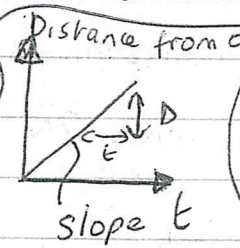 Distance from
D
t
slope t